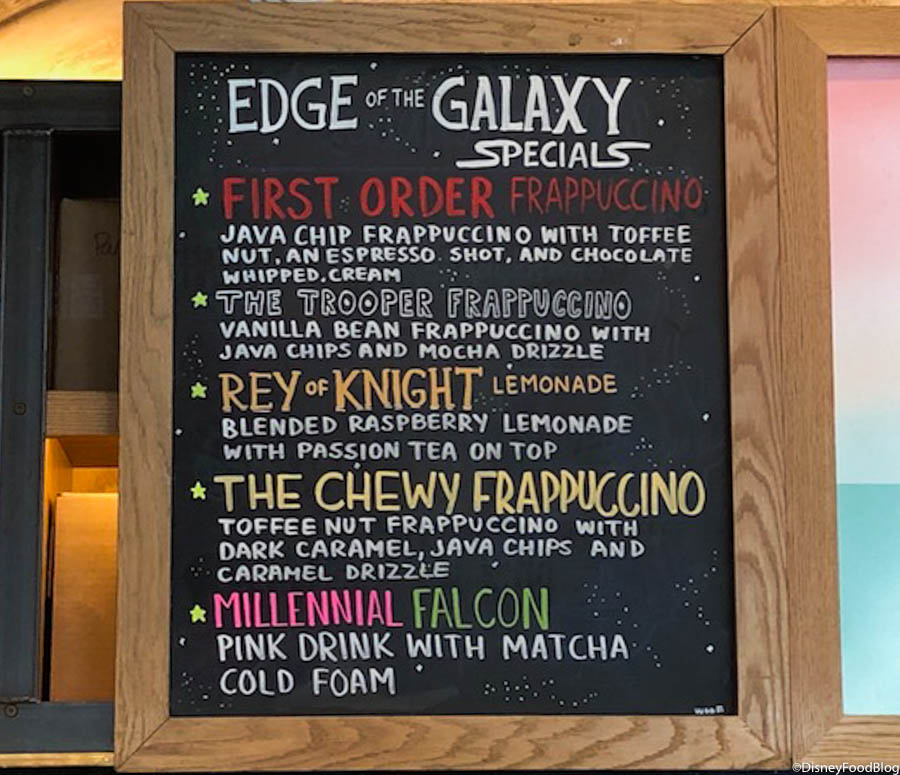 EDGE OF THE GALAXY
SPECIALS
FIRST ORDER FRAPPUCCINO
JAVA CHIP FRAPPUCCINO WITH TOFFEE
NUT, AN ESPRESSO SHOT, AND CHOCOLATE
WHIPPED CREAM
THE TROOPER FRAPPUCCINO
VANILLA BEAN FRAPPUCCINO WITH
JAVA CHIPS AND MOCHA DRIZZLE
REY OF KNIGHT LEMONADE
BLENDED RASPBERRY LEMONADE
WITH PASSION TEA ON TOP
THE CHEWY FRAPPUCCINO
TOFFEE NUT FRAPPUCCINO WITH
DARK CARAMEL, JAVA CHIPS AND
CARAMEL DRIZZLE
MILLENNIAL FALCON
PINK DRINK WITH MATCHA
COLD FOAM
©DisneyFoodBlog